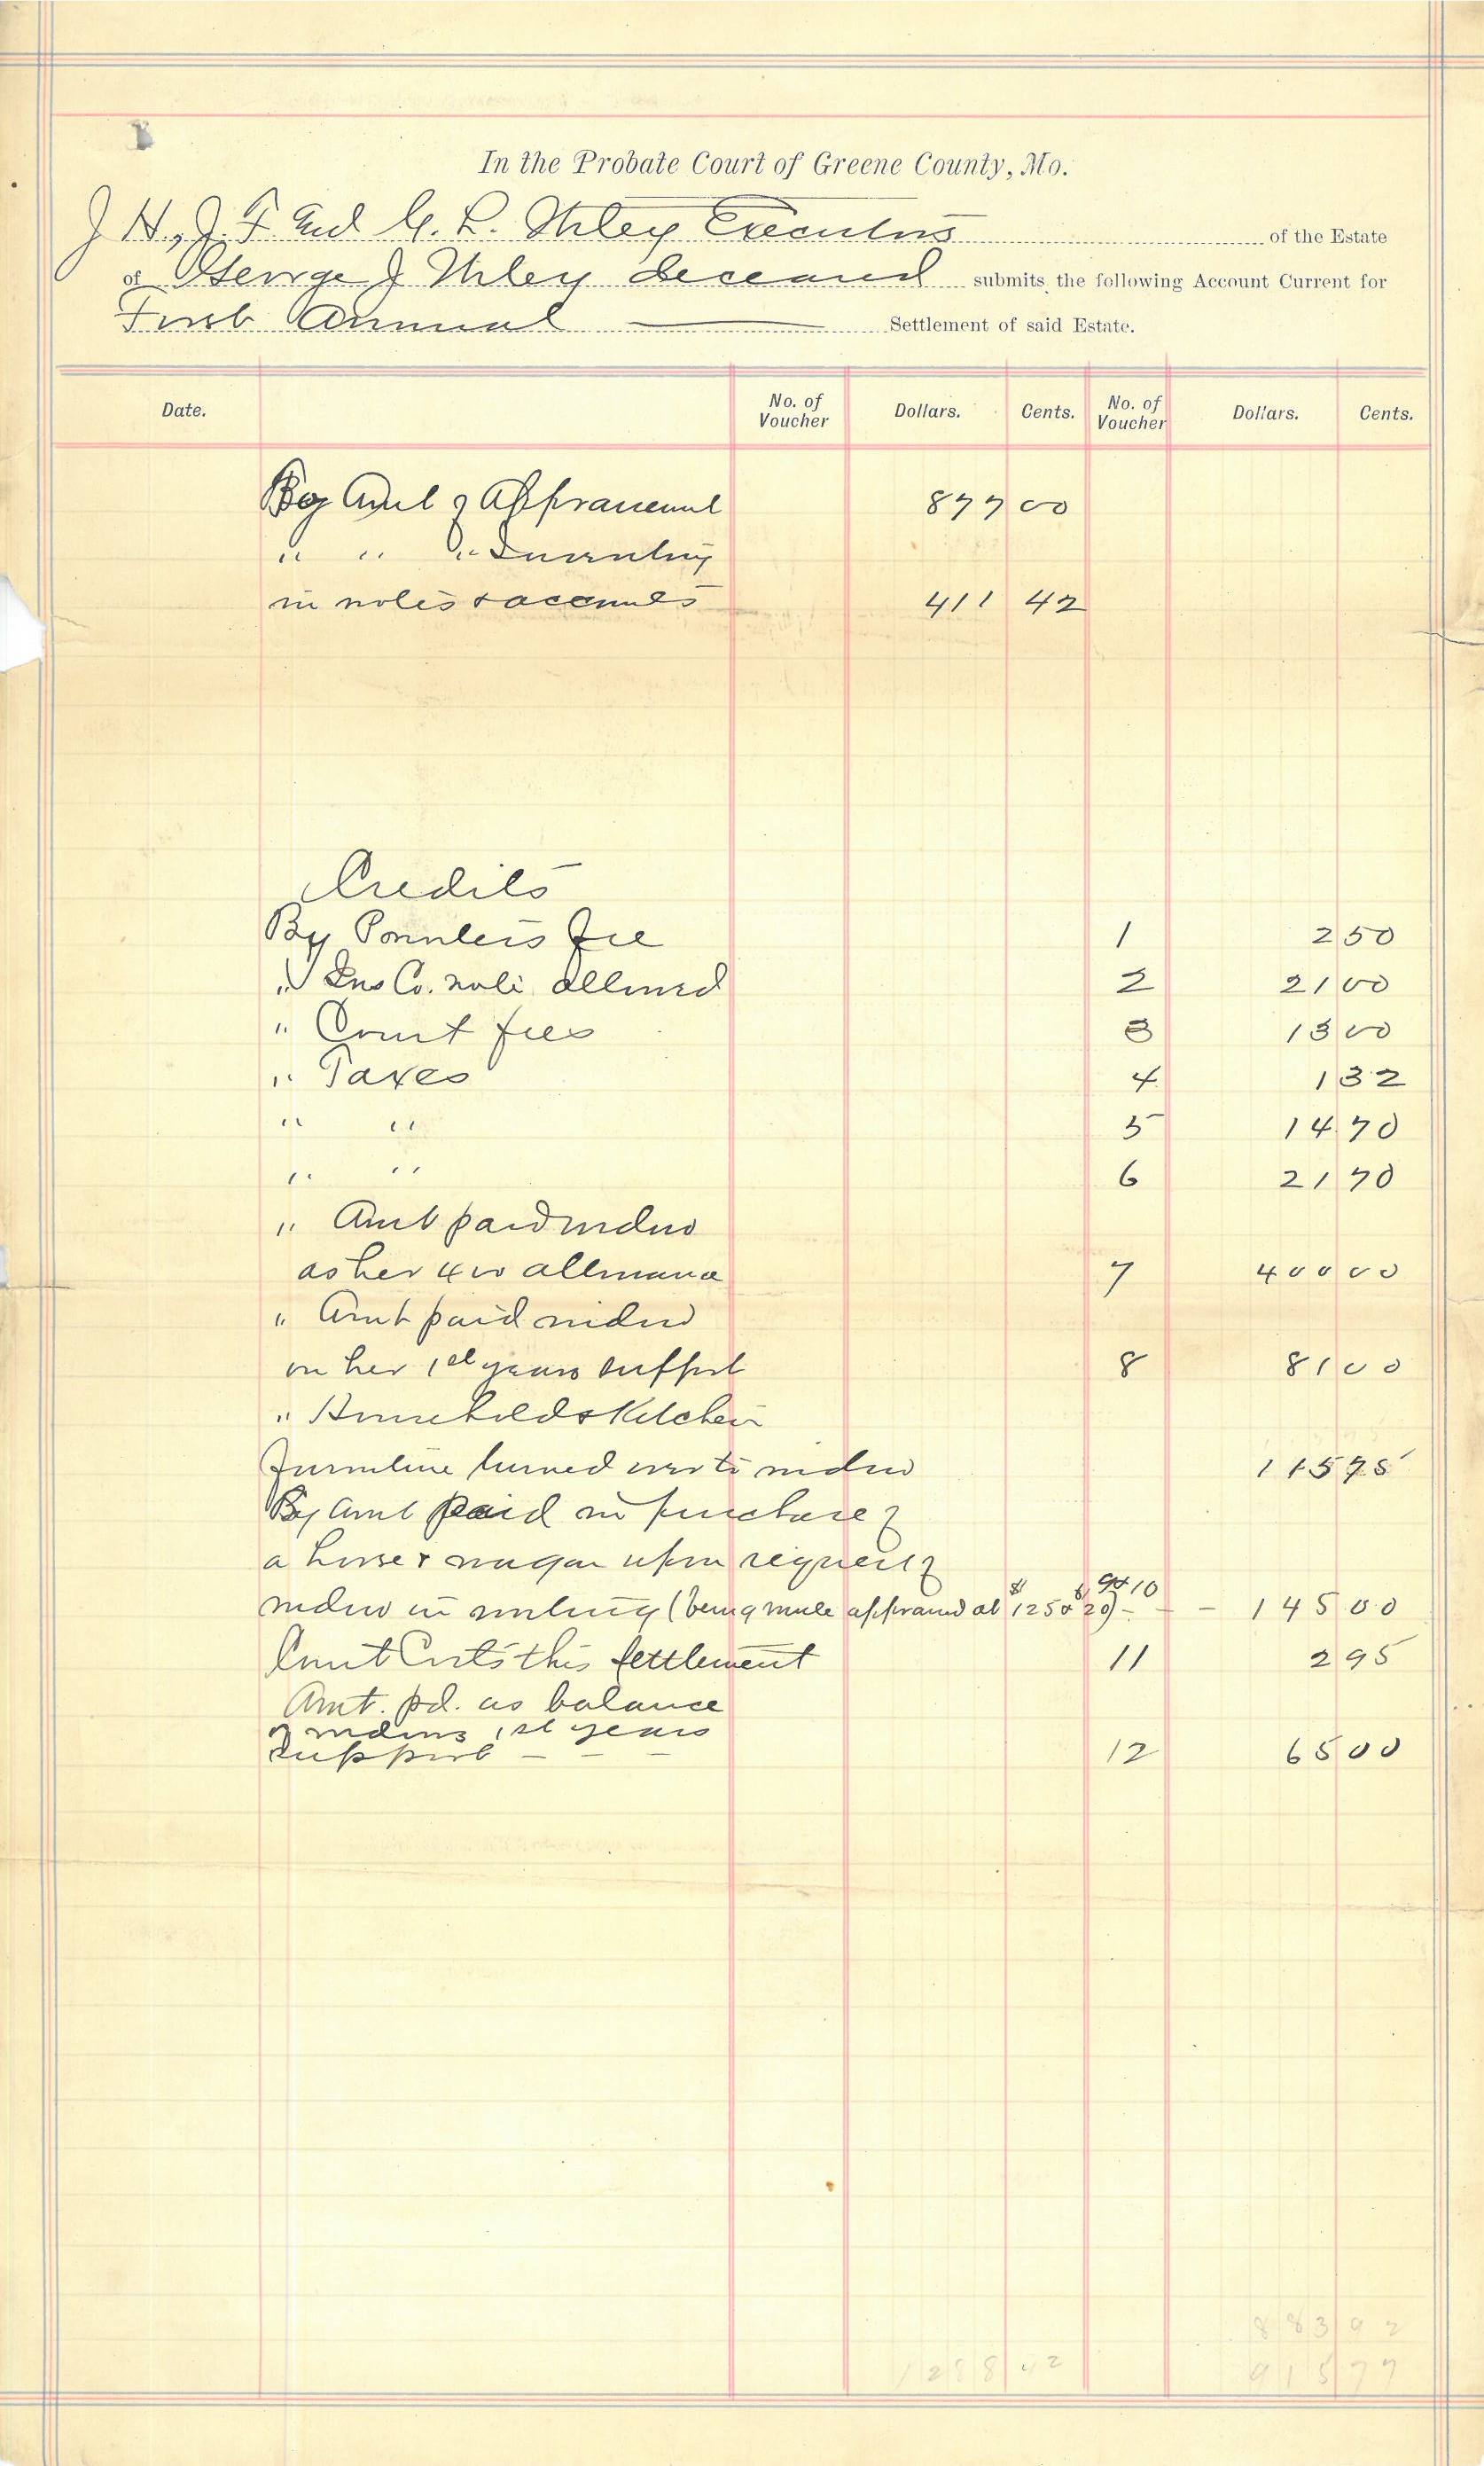 In the Probate Court of Greene County, Mo.
J H., J. F. and G. L. Utley Executors of the Estate
of George J Utley deceased submits the following Account Current for
First Annual Settlement of said Estate.
Date. No. of Voucher Dollars. Cents. No. of Voucher Dollars. Cents.
By Amt of Appraisement 877 00
" " " Inventory
in notes & accounts 411 42
Credits
By Printers fee 1 2 50
" Ins Co. note allowed 2 21 00
" Court fees 3 13 00
" Taxes 4 1 32
" " 5 14 70
" " 6 21 70
" Amt paid widow
as her 400 allowance 7 400 00
" Amt paid widow
on her 1st years support 8 81 00
" Household & Kitchen
Furniture turned over to widow 115 75
By amt paid in purchase of
a horse & wagon upon request of
widow in writing (being mule appraised at $125 & $20) - 9&10 - - 145 00
Court Costs this settlement 11 2 95
Amt. pd. as balance
of widows 1st years
support - - - 12 65 00
883 92
1288 42 915 77